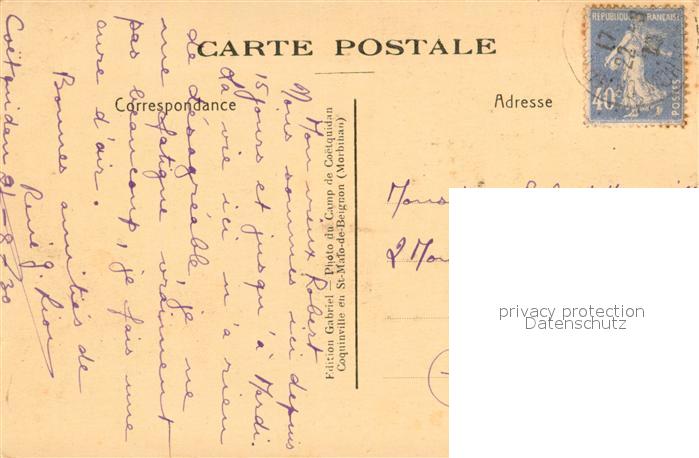 CARTE POSTALE
Correspondance
Adresse
REPUBLIQUE FRANÇAISE
40c
POSTES
17
22
Mon vieux Robert
Nous sommes ici depuis
15 jours et jusqu'à Mardi.
La vie ici n'a rien
de désagréable, je ne
me fatigue vraiment
pas beaucoup, je fais une
cure d'air.
Bonnes amitiés de
René G.
Coëtquidan 21-8-30
Edition Gabriel — Photo du Camp de Coëtquidan
Coquinville en St-Malo-de-Beignon (Morbihan)
2
privacy protection
Datenschutz